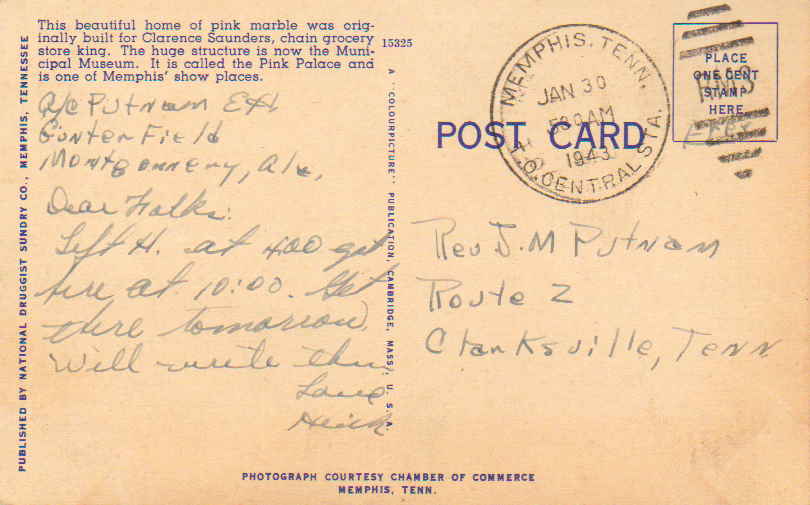 This beautiful home of pink marble was orig-
inally built for Clarence Saunders, chain grocery
store king. The huge structure is now the Muni-
cipal Museum. It is called the Pink Palace and
is one of Memphis' show places.
15325
A/C Putnam
Gunter Field
Montgomery, Ala.
Dear Folks:
Left H. at 400 got
here at 10:00. Get
there tomorrow.
Will write then
Love
PUBLISHED BY NATIONAL DRUGGIST SUNDRY CO., MEMPHIS, TENNESSEE
A "COLOURPICTURE" PUBLICATION, CAMBRIDGE, MASS., U. S. A.
POST CARD
MEMPHIS, TENN.
JAN 30
530 AM
1943
R.P.O. CENTRAL STA.
PLACE
ONE CENT
STAMP
HERE
RMS
Free
Rev J. M Putnam
Route 2
Clarksville, Tenn
PHOTOGRAPH COURTESY CHAMBER OF COMMERCE
MEMPHIS, TENN.